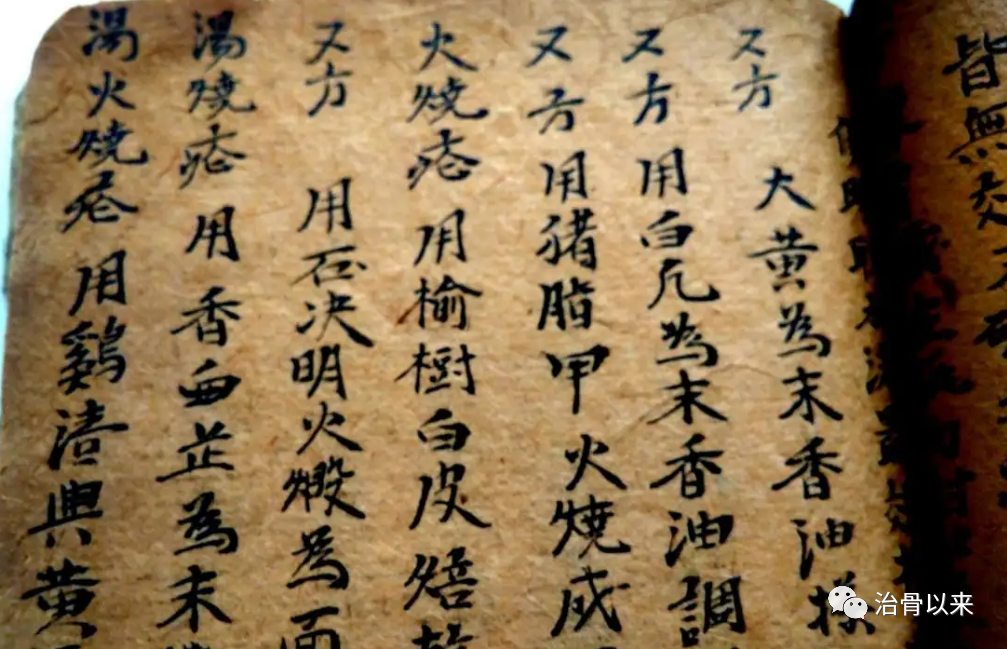 皆無效又
又方 大黃為末香油搽
又方 用白凡為末香油調
又方 用猪脂甲火燒成
火燒疮 用榆樹白皮焙
又方 用石决明火煅為面
湯燒疮 用香白芷為末
湯火燒疮 用鷄清與黃
治骨以来